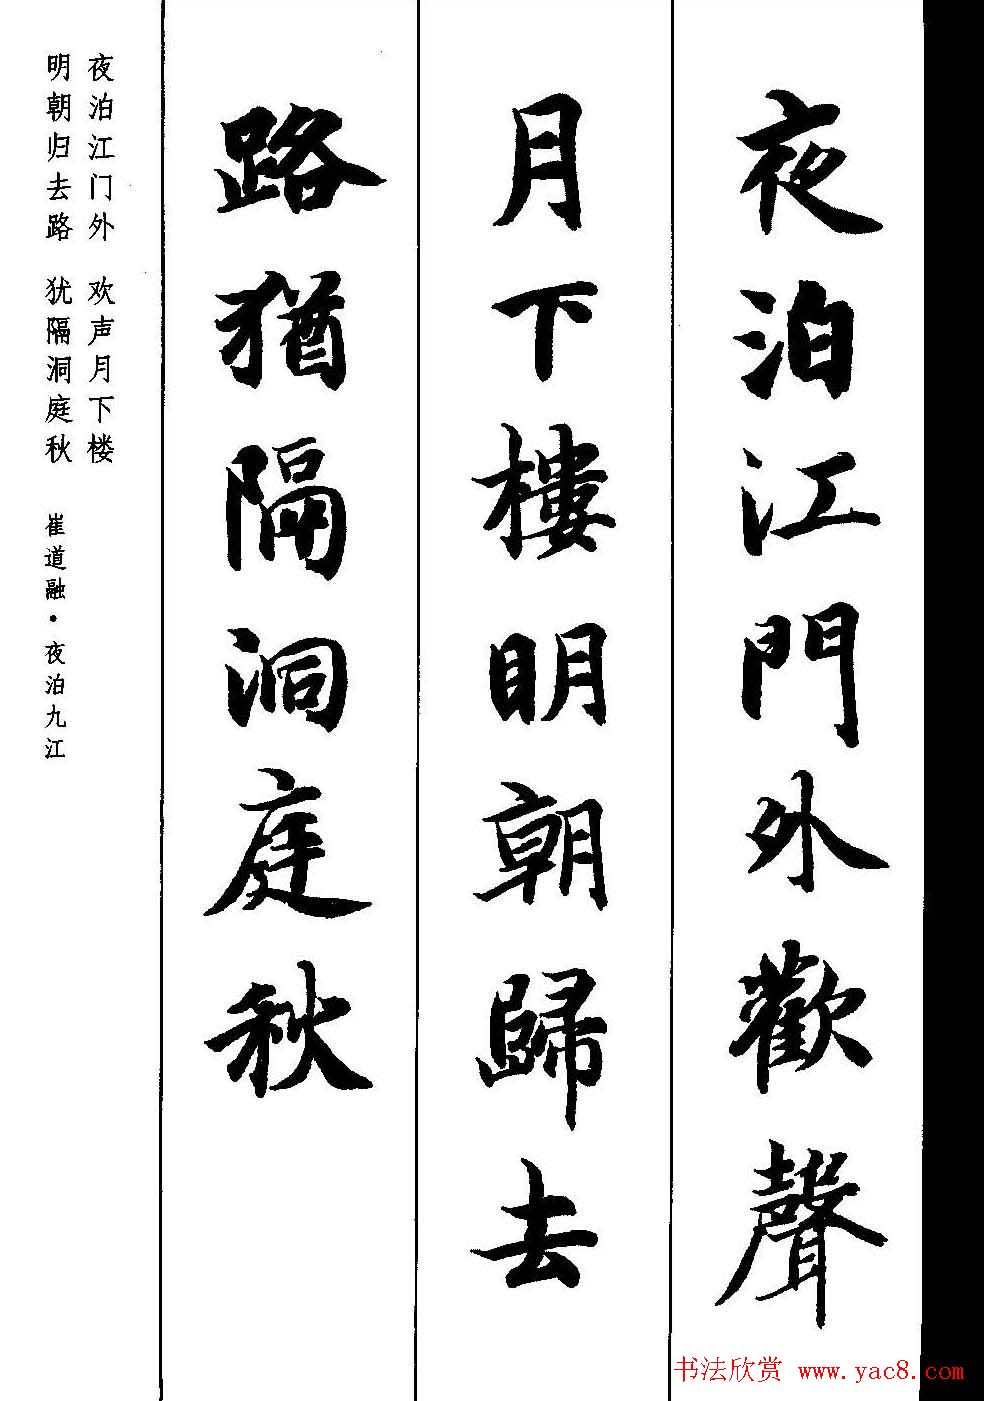 夜泊江門外歡聲
月下樓明朝歸去
路猶隔洞庭秋
夜泊江门外 欢声月下楼
明朝归去路 犹隔洞庭秋 崔道融·夜泊九江
书法欣赏 www.yac8.com